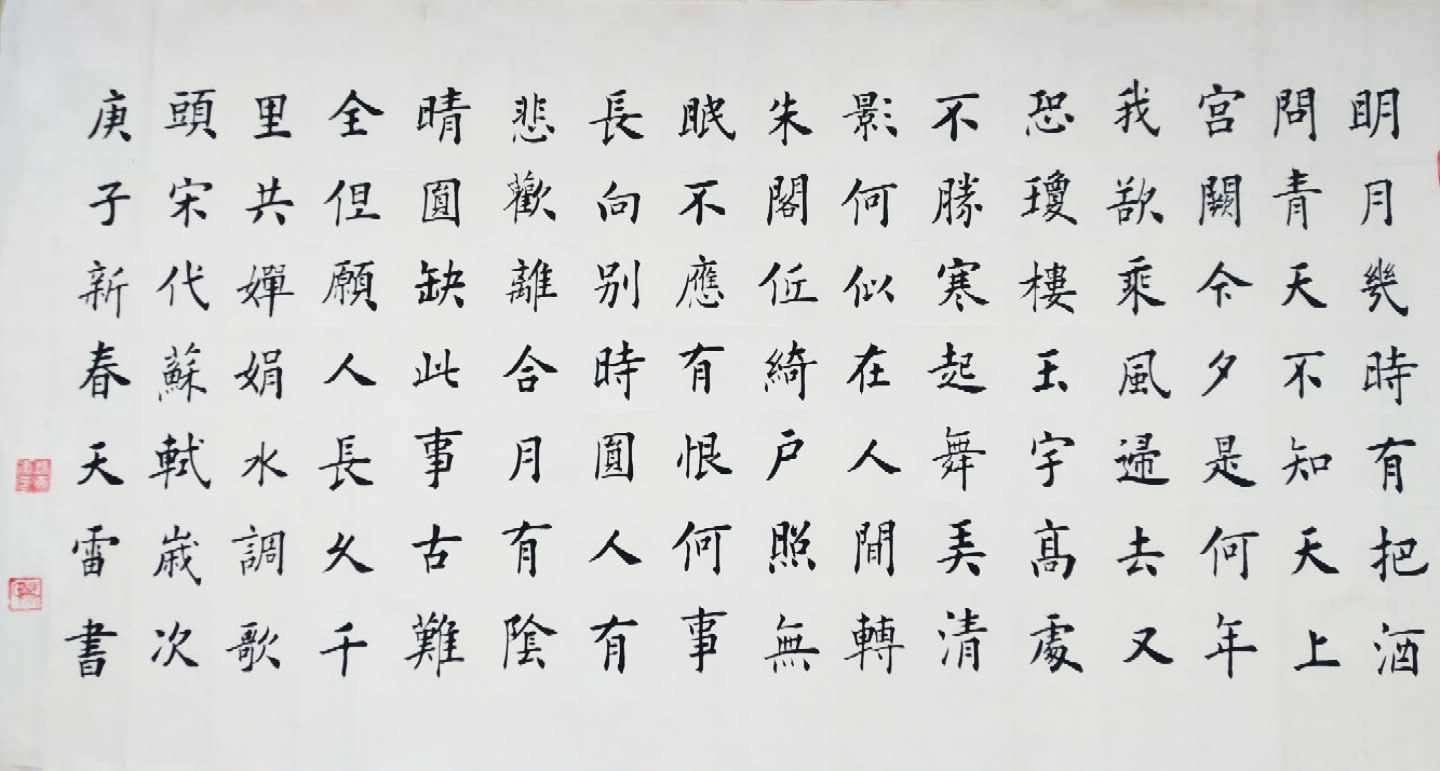 明月幾時有把酒
問青天不知天上
宮闕今夕是何年
我欲乘風歸去又
恐瓊樓玉宇高處
不勝寒起舞弄清
影何似在人間轉
朱閣低綺户照無
眠不應有恨何事
長向别時圓人有
悲歡離合月有陰
晴圓缺此事古難
全但願人長久千
里共嬋娟水調歌
頭宋代蘇軾歲次
庚子新春天雷書